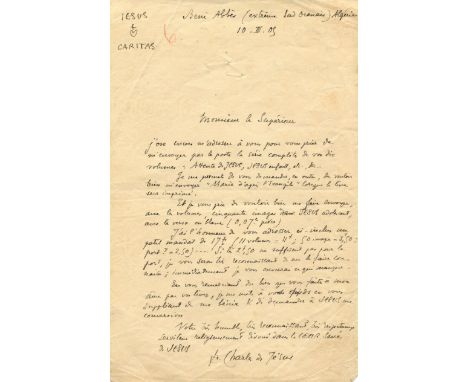 JESUS
CARITAS
6
Beni Abbès (extrême Sud Oranais) Algérie
10 - III - 05
Monsieur le Supérieur
j'ose encore m'adresser à vous pour vous prier de
m'envoyer par la poste la série complète de vos dix
volumes : Attente de JESUS, JESUS enfant, etc.
Je me permets de vous demander, en outre, de vouloir
bien m'envoyer "Marie d'après l'Evangile" lorsque le livre
sera imprimé.
Et je vous prie de vouloir bien me faire envoyer,
avec les volumes cinquante images JESUS adolescent,
avec le verso en blanc (0,07 pièce)
J'ai l'honneur de vous adresser ci-inclus un
petit mandat de 17f (11 volumes = 11f ; 50 images = 3,50 ;
port ? = 2,50) Si les 2f,50 ne suffisent pas pour le
port, je vous serai très reconnaissant de me le faire con-
naître ; immédiatement je vous enverrai ce qui manque
En vous remerciant du bien que vous faites à mon
âme par vos livres, je me mets à vos pieds en vous
suppliant de me bénir & de demander à JESUS ma
conversion
Votre très humble, très reconnaissant, très respectueux
serviteur religieusement dévoué dans le CŒUR sacré
de JESUS
fr. Charles de Jésus